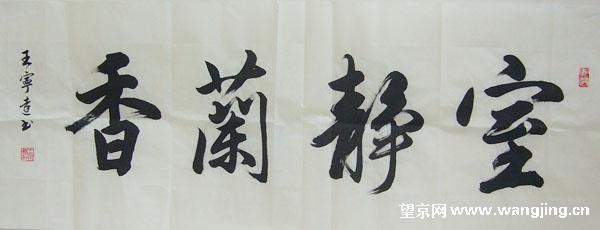 室靜蘭香
王寧達书
望京网 www.wangjing.cn